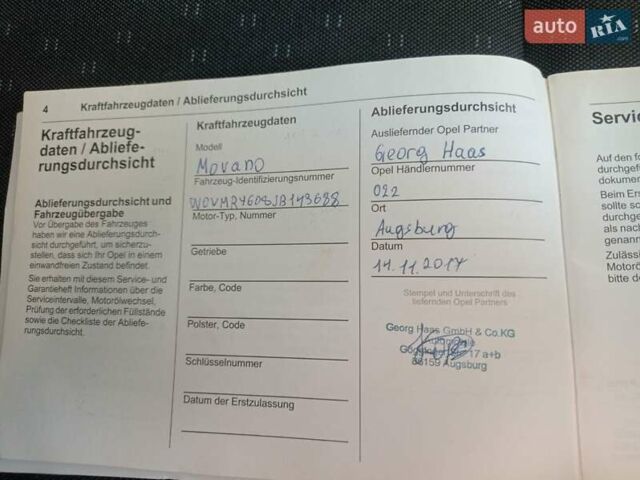 auto RIA
.com
4 Kraftfahrzeugdaten / Ablieferungsdurchsicht
Kraftfahrzeug-
daten / Abliefe-
rungsdurchsicht
Ablieferungsdurchsicht und
Fahrzeugübergabe
Vor Übergabe des Fahrzeuges
haben wir eine Ablieferungsdurch-
sicht durchgeführt, um sicherzu-
stellen, dass sich Ihr Opel in einem
einwandfreien Zustand befindet.
Sie erhalten mit diesem Service- und
Garantieheft Informationen über die
Serviceintervalle, Motorölwechsel,
Prüfung der erforderlichen Füllstände
sowie die Checkliste der Abliefe-
rungsdurchsicht.
Kraftfahrzeugdaten
Modell
Movano
Fahrzeug-Identifizierungsnummer
Motor-Typ, Nummer
Getriebe
Farbe, Code
Polster, Code
Schlüsselnummer
Datum der Erstzulassung
Ablieferungsdurchsicht
Ausliefernder Opel Partner
Georg Haas
Opel Händlernummer
022
Ort
Augsburg
Datum
14.11.2017
Stempel und Unterschrift des
liefernden Opel Partners
Georg Haas GmbH & Co.KG
17 a+b
86159 Augsburg
Service
Auf den fo
durchgefü
dokumen
Beim Ers
sollte so
durchge
als nach
genann
Zulässi
Motorö
bitte de